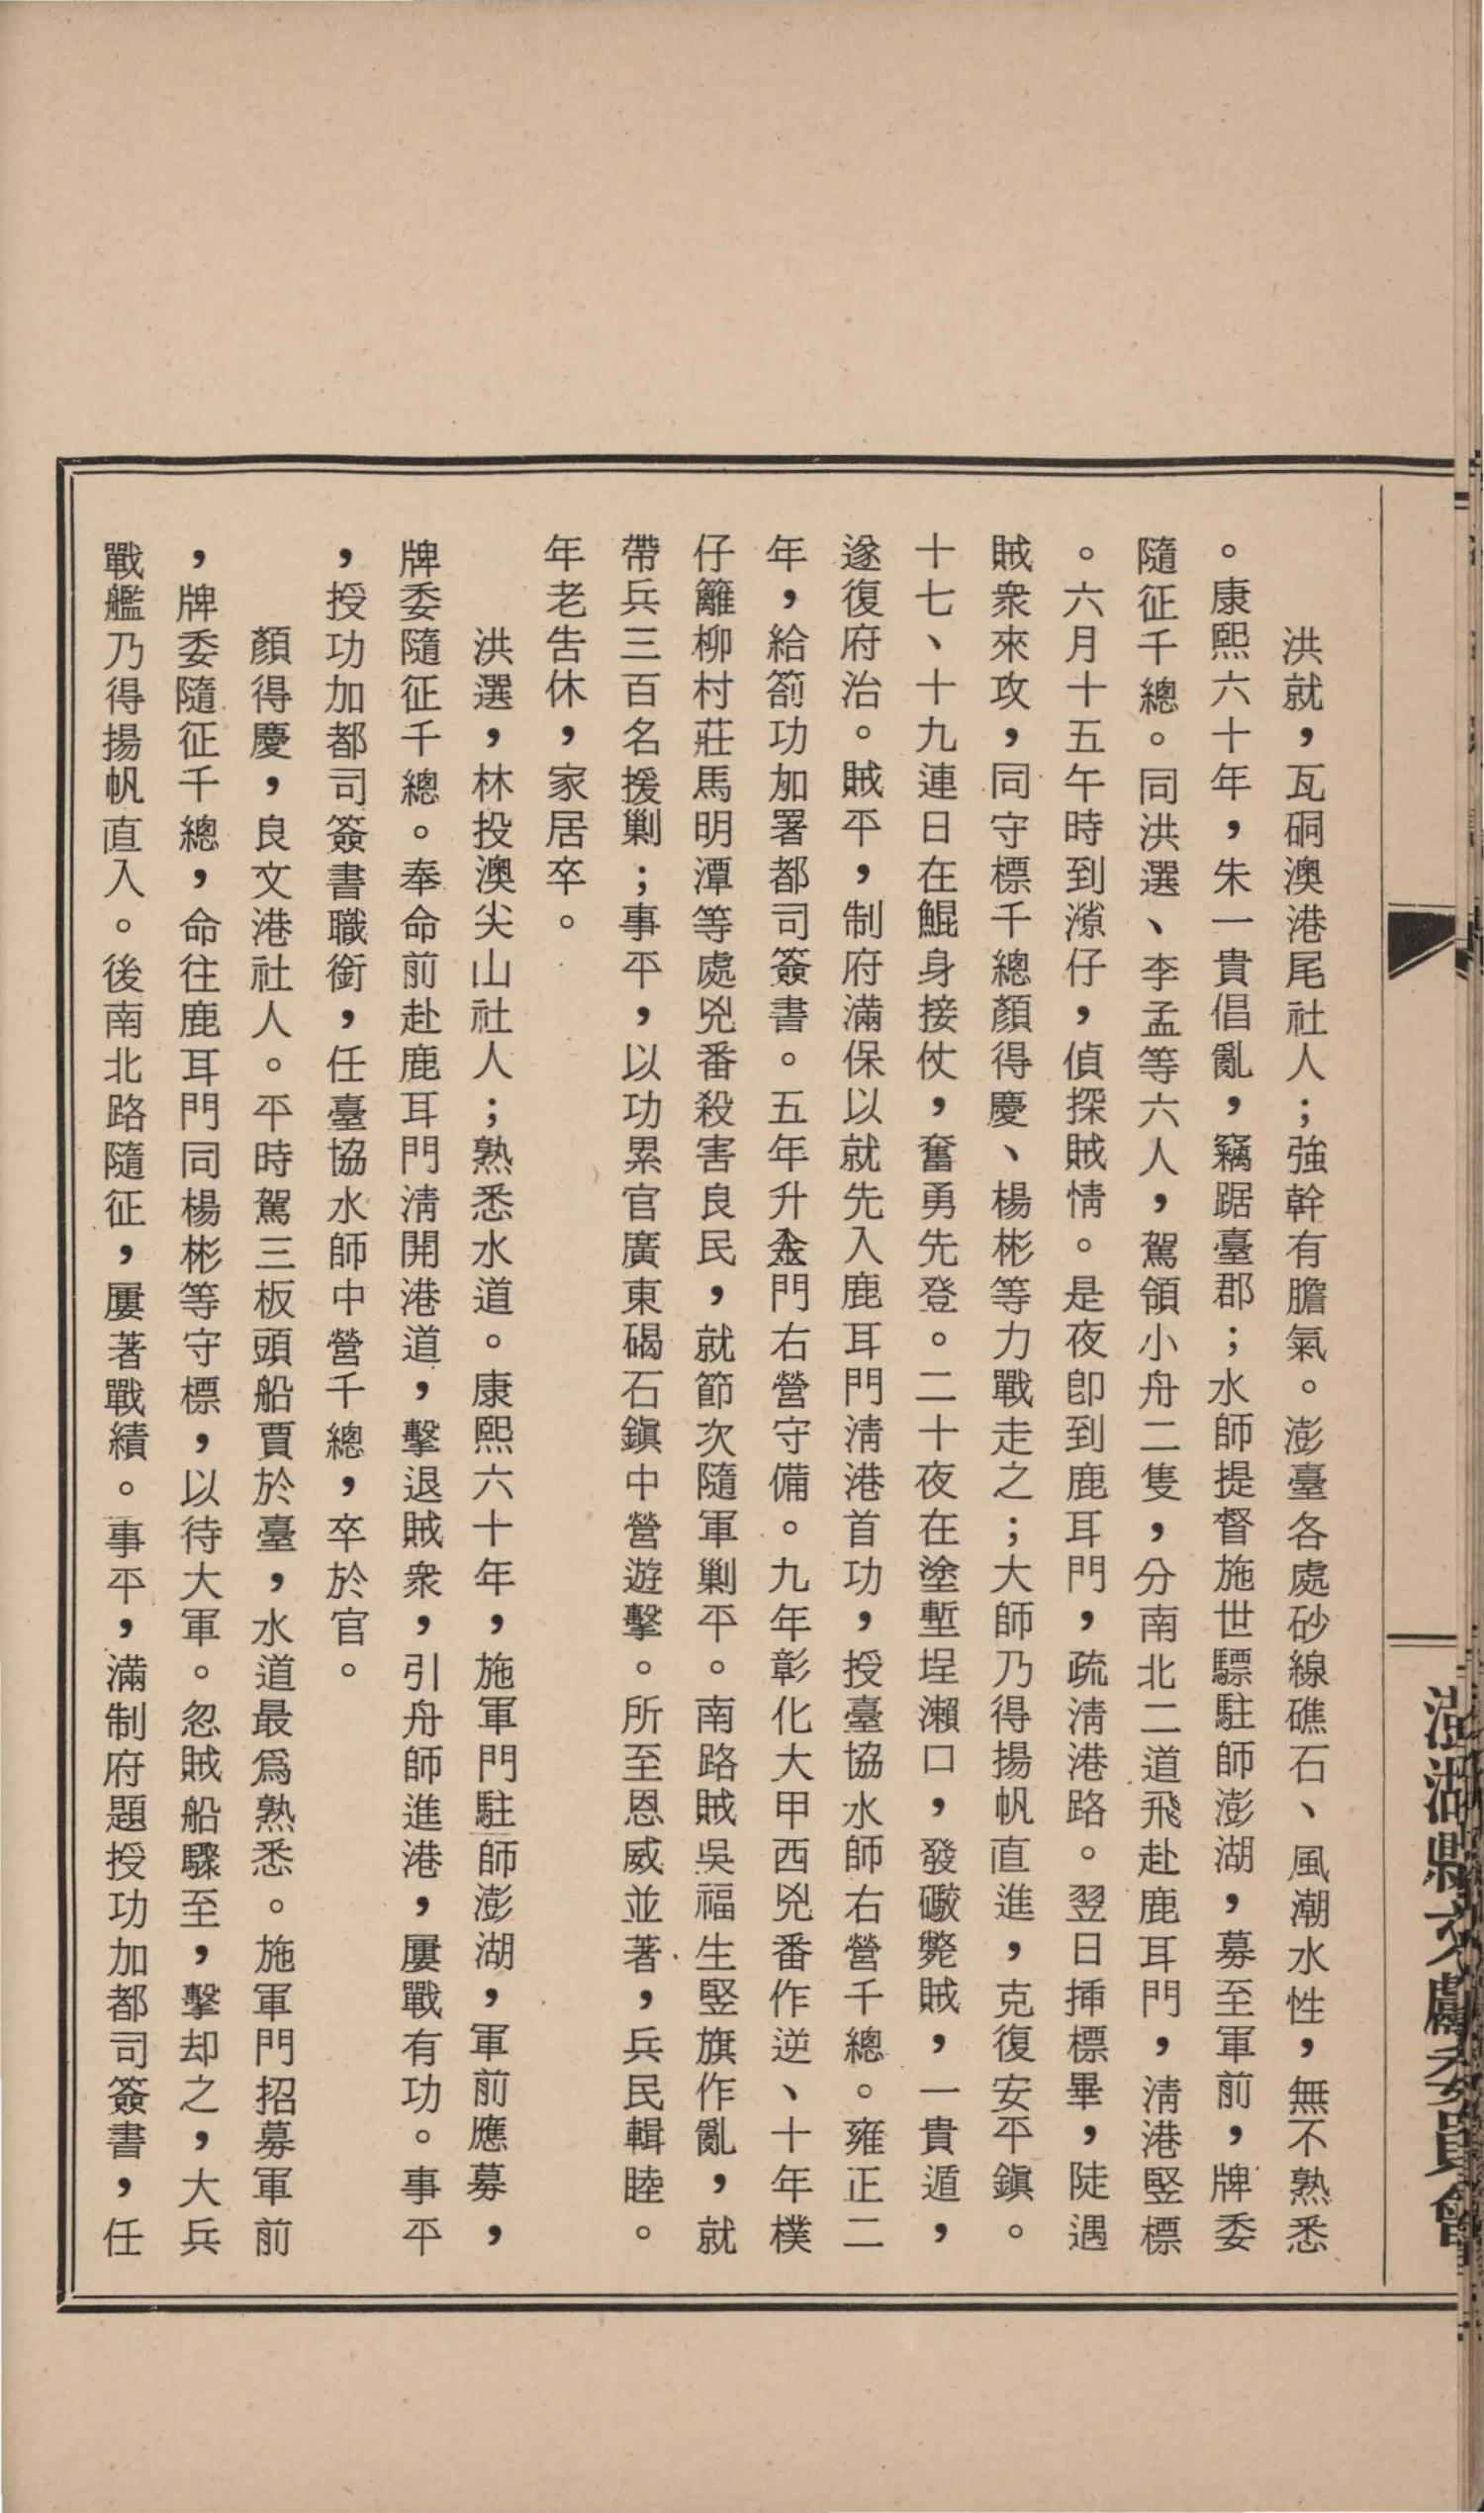 洪就，瓦硐澳港尾社人；強幹有膽氣。澎臺各處砂線礁石、風潮水性，無不熟悉
。康熙六十年，朱一貴倡亂，竊踞臺郡；水師提督施世驃駐師澎湖，募至軍前，牌委
隨征千總。同洪選、李孟等六人，駕領小舟二隻，分南北二道飛赴鹿耳門，淸港竪標
。六月十五午時到潦仔，偵探賊情。是夜卽到鹿耳門，疏淸港路。翌日揷標畢，陡遇
賊衆來攻，同守標千總顏得慶、楊彬等力戰走之；大師乃得揚帆直進，克復安平鎭。
十七、十九連日在鯤身接仗，奮勇先登。二十夜在塗塹埕瀨口，發礮斃賊，一貴遁，
遂復府治。賊平，制府滿保以就先入鹿耳門淸港首功，授臺協水師右營千總。雍正二
年，給箚功加署都司簽書。五年升金門右營守備。九年彰化大甲西兇番作逆、十年樸
仔籬柳村莊馬明潭等處兇番殺害良民，就節次隨軍剿平。南路賊吳福生竪旗作亂，就
帶兵三百名援剿；事平，以功累官廣東碣石鎭中營遊擊。所至恩威並著，兵民輯睦。
年老告休，家居卒。
洪選，林投澳尖山社人；熟悉水道。康熙六十年，施軍門駐師澎湖，軍前應募，
牌委隨征千總。奉命前赴鹿耳門淸開港道，擊退賊衆，引舟師進港，屢戰有功。事平
，授功加都司簽書職銜，任臺協水師中營千總，卒於官。
顏得慶，良文港社人。平時駕三板頭船賈於臺，水道最爲熟悉。施軍門招募軍前
，牌委隨征千總，命往鹿耳門同楊彬等守標，以待大軍。忽賊船驟至，擊却之，大兵
戰艦乃得揚帆直入。後南北路隨征，屢著戰績。事平，滿制府題授功加都司簽書，任
澎湖縣文獻委員會